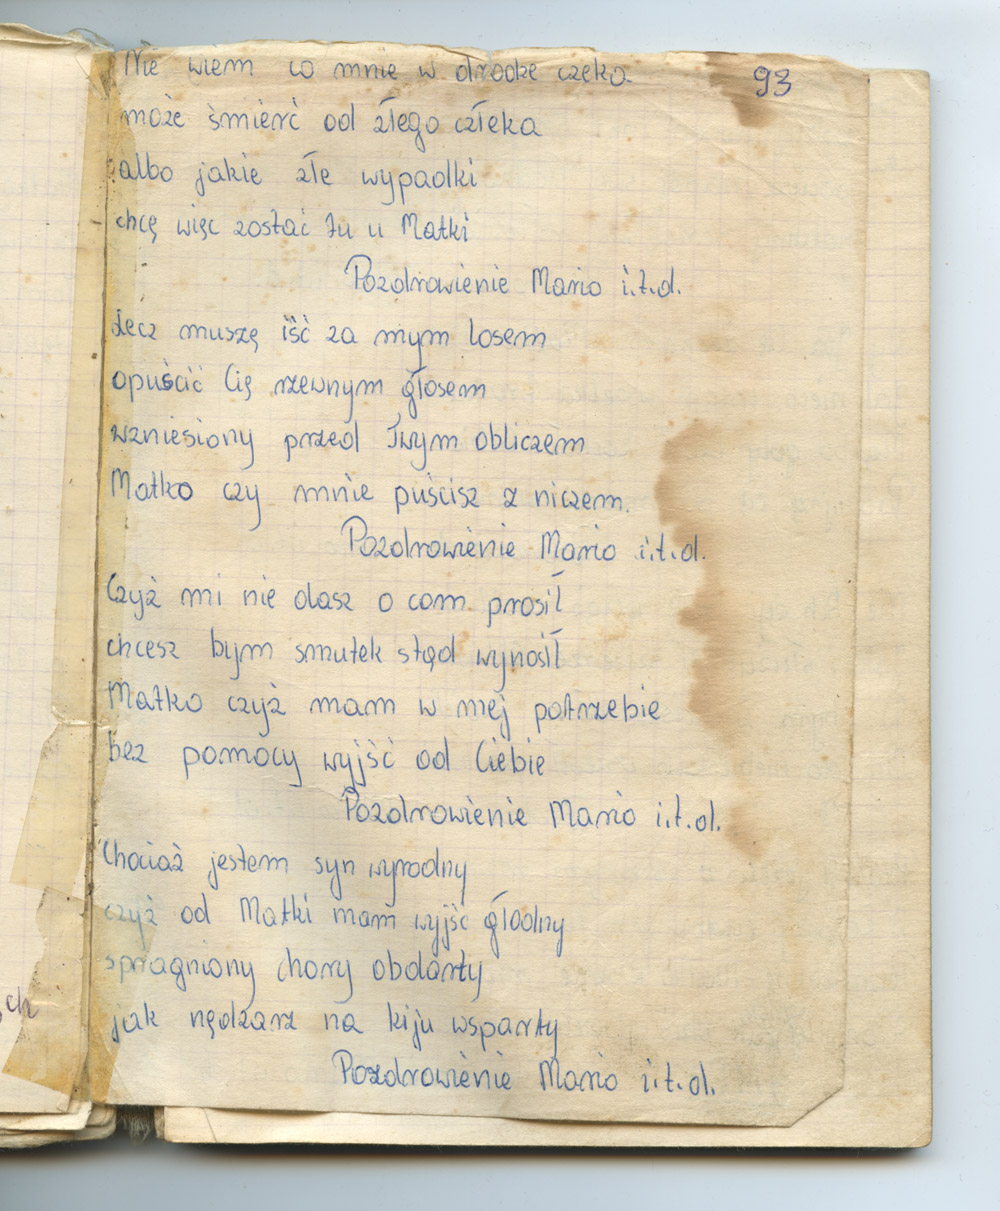 93
Nie wiem co mnie w drodze czeka
może śmierć od złego człeka
albo jakie złe wypadki
chcę więc zostać tu u Matki
Pozdrowienie Mario i.t.d.
Lecz muszę iść za mym losem
opuścić Cię rzewnym głosem
wzniesiony przed Twym obliczem
Matko czy mnie puścisz z niczem.
Pozdrowienie Mario i.t.d.
Czyż mi nie dasz o com prosił
chcesz bym smutek stąd wynosił
Matko czyż mam w mej potrzebie
bez pomocy wyjść od Ciebie
Pozdrowienie Mario i.t.d.
Chociaż jestem syn wyrodny
czyż od Matki mam wyjść głodny
spragniony chory obdarty
jak nędzarz na kiju wsparty
Pozdrowienie Mario i.t.d.